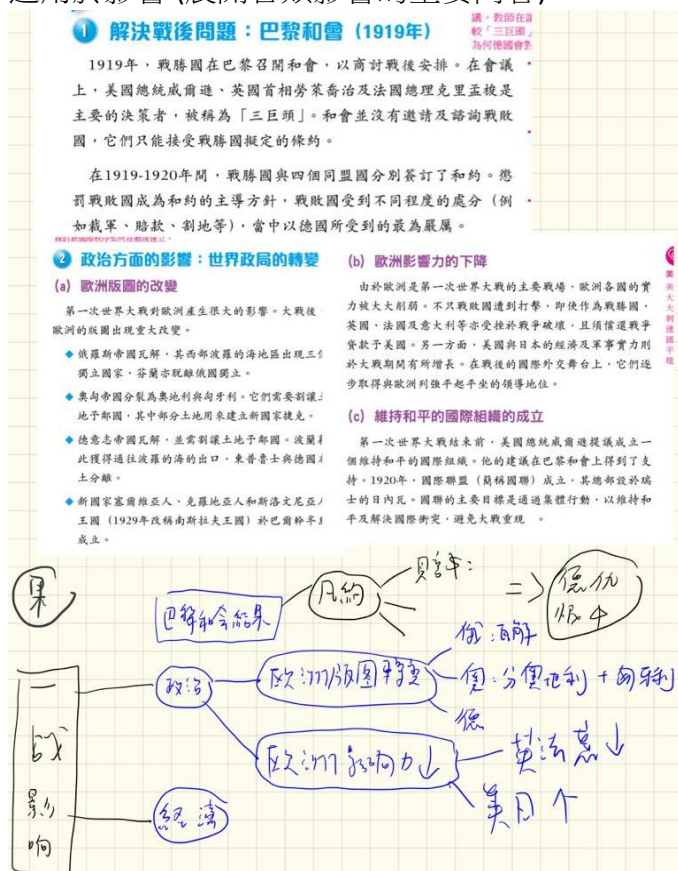 1 解決戰後問題：巴黎和會（1919年）
議，教師在
較「三巨頭」
為何德國會對
1919年，戰勝國在巴黎召開和會，以商討戰後安排。在會議
上，美國總統威爾遜、英國首相勞萊喬治及法國總理克里孟梭是
主要的決策者，被稱為「三巨頭」。和會並沒有邀請及諮詢戰敗
國，它們只能接受戰勝國擬定的條約。
在1919-1920年間，戰勝國與四個同盟國分別簽訂了和約。懲
罰戰敗國成為和約的主導方針，戰敗國受到不同程度的處分（例
如裁軍、賠款、割地等），當中以德國所受到的最為嚴厲。
2 政治方面的影響：世界政局的轉變
(a) 歐洲版圖的改變
第一次世界大戰對歐洲產生很大的影響。大戰後，
歐洲的版圖出現重大改變。
◆ 俄羅斯帝國瓦解，其西部波羅的海地區出現三個
獨立國家，芬蘭亦脫離俄國獨立。
◆ 奧匈帝國分裂為奧地利與匈牙利。它們需要割讓土
地予鄰國，其中部分土地用來建立新國家捷克。
◆ 德意志帝國瓦解，並需割讓土地予鄰國。波蘭藉
此獲得通往波羅的海的出口，東普魯士與德國本
土分離。
◆ 新國家塞爾維亞人、克羅地亞人和斯洛文尼亞人
王國（1929年改稱南斯拉夫王國）於巴爾幹半島
成立。
(b) 歐洲影響力的下降
由於歐洲是第一次世界大戰的主要戰場，歐洲各國的實
力被大大削弱。不只戰敗國遭到打擊，即使作為戰勝國，
英國、法國及意大利等亦受挫於戰爭破壞，且須償還戰爭
貸款予美國。另一方面，美國與日本的經濟及軍事實力則
於大戰期間有所增長。在戰後的國際外交舞台上，它們逐
步取得與歐洲列強平起平坐的領導地位。
(c) 維持和平的國際組織的成立
第一次世界大戰結束前，美國總統威爾遜提議成立一
個維持和平的國際組織。他的建議在巴黎和會上得到了支
持。1920年，國際聯盟（簡稱國聯）成立，其總部設於瑞
士的日內瓦。國聯的主要目標是通過集體行動，以維持和
平及解決國際衝突，避免大戰重現 。
美
美
大
大
刺
達
國
平
理
果
巴黎和會結果
凡約
=>
一
戰
影
响
政治
欧洲版図轉變
俄:瓦解
奧:分奧地利+匈牙利
德
欧洲影响力↓
英法意↓
美日↑
經濟